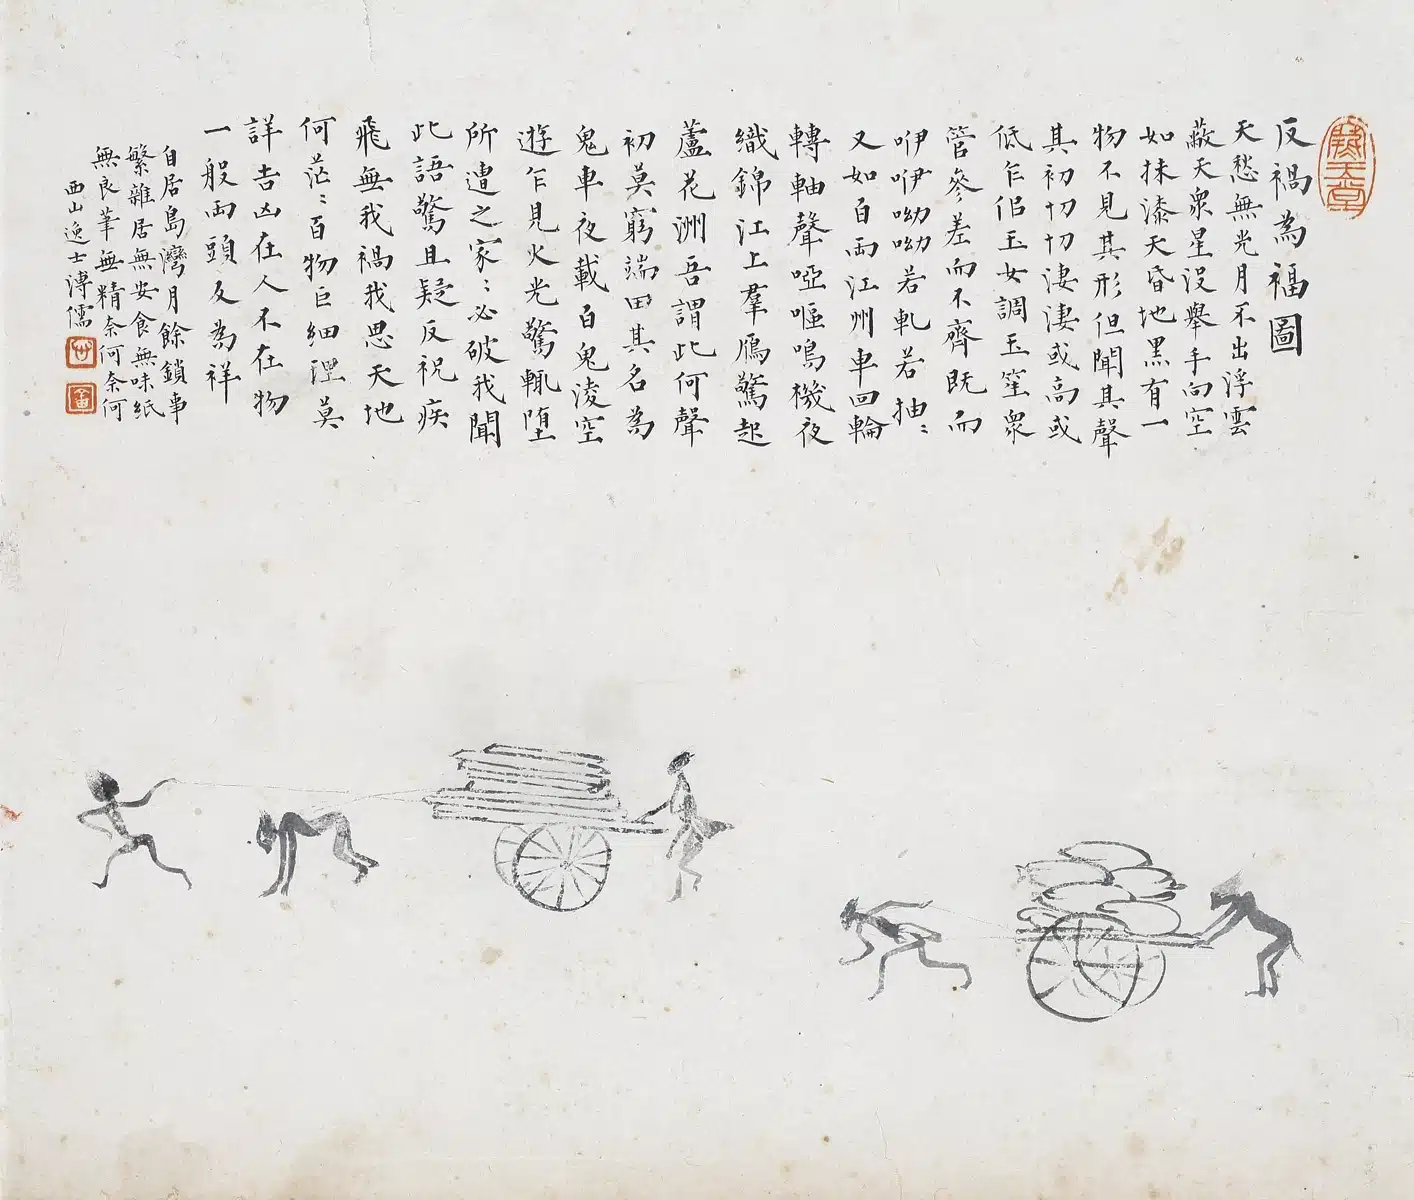 反禍為福圖
天愁無光月不出浮雲
蔽天衆星沒舉手向空
如抹漆天昏地黑有一
物不見其形但聞其聲
其初切切淒淒或高或
低乍佀玉女調玉笙衆
管參差而不齊既而
咿咿呦呦若軋若抽〻
又如百兩江州車回輪
轉軸聲啞嘔鳴機夜
織錦江上羣鴈驚起
蘆花洲吾謂此何聲
初莫窮端由其名為
鬼車夜載百鬼淩空
遊乍見火光驚輒墮
所遭之家〻必破我聞
此語驚且疑反祝疾
飛無我禍我思天地
何茫〻百物巨細理莫
詳吉凶在人不在物
一般兩頭反為祥
自居島灣月餘鎖事
繁雜居無安食無味紙
無良筆無精奈何奈何
西山逸士溥儒